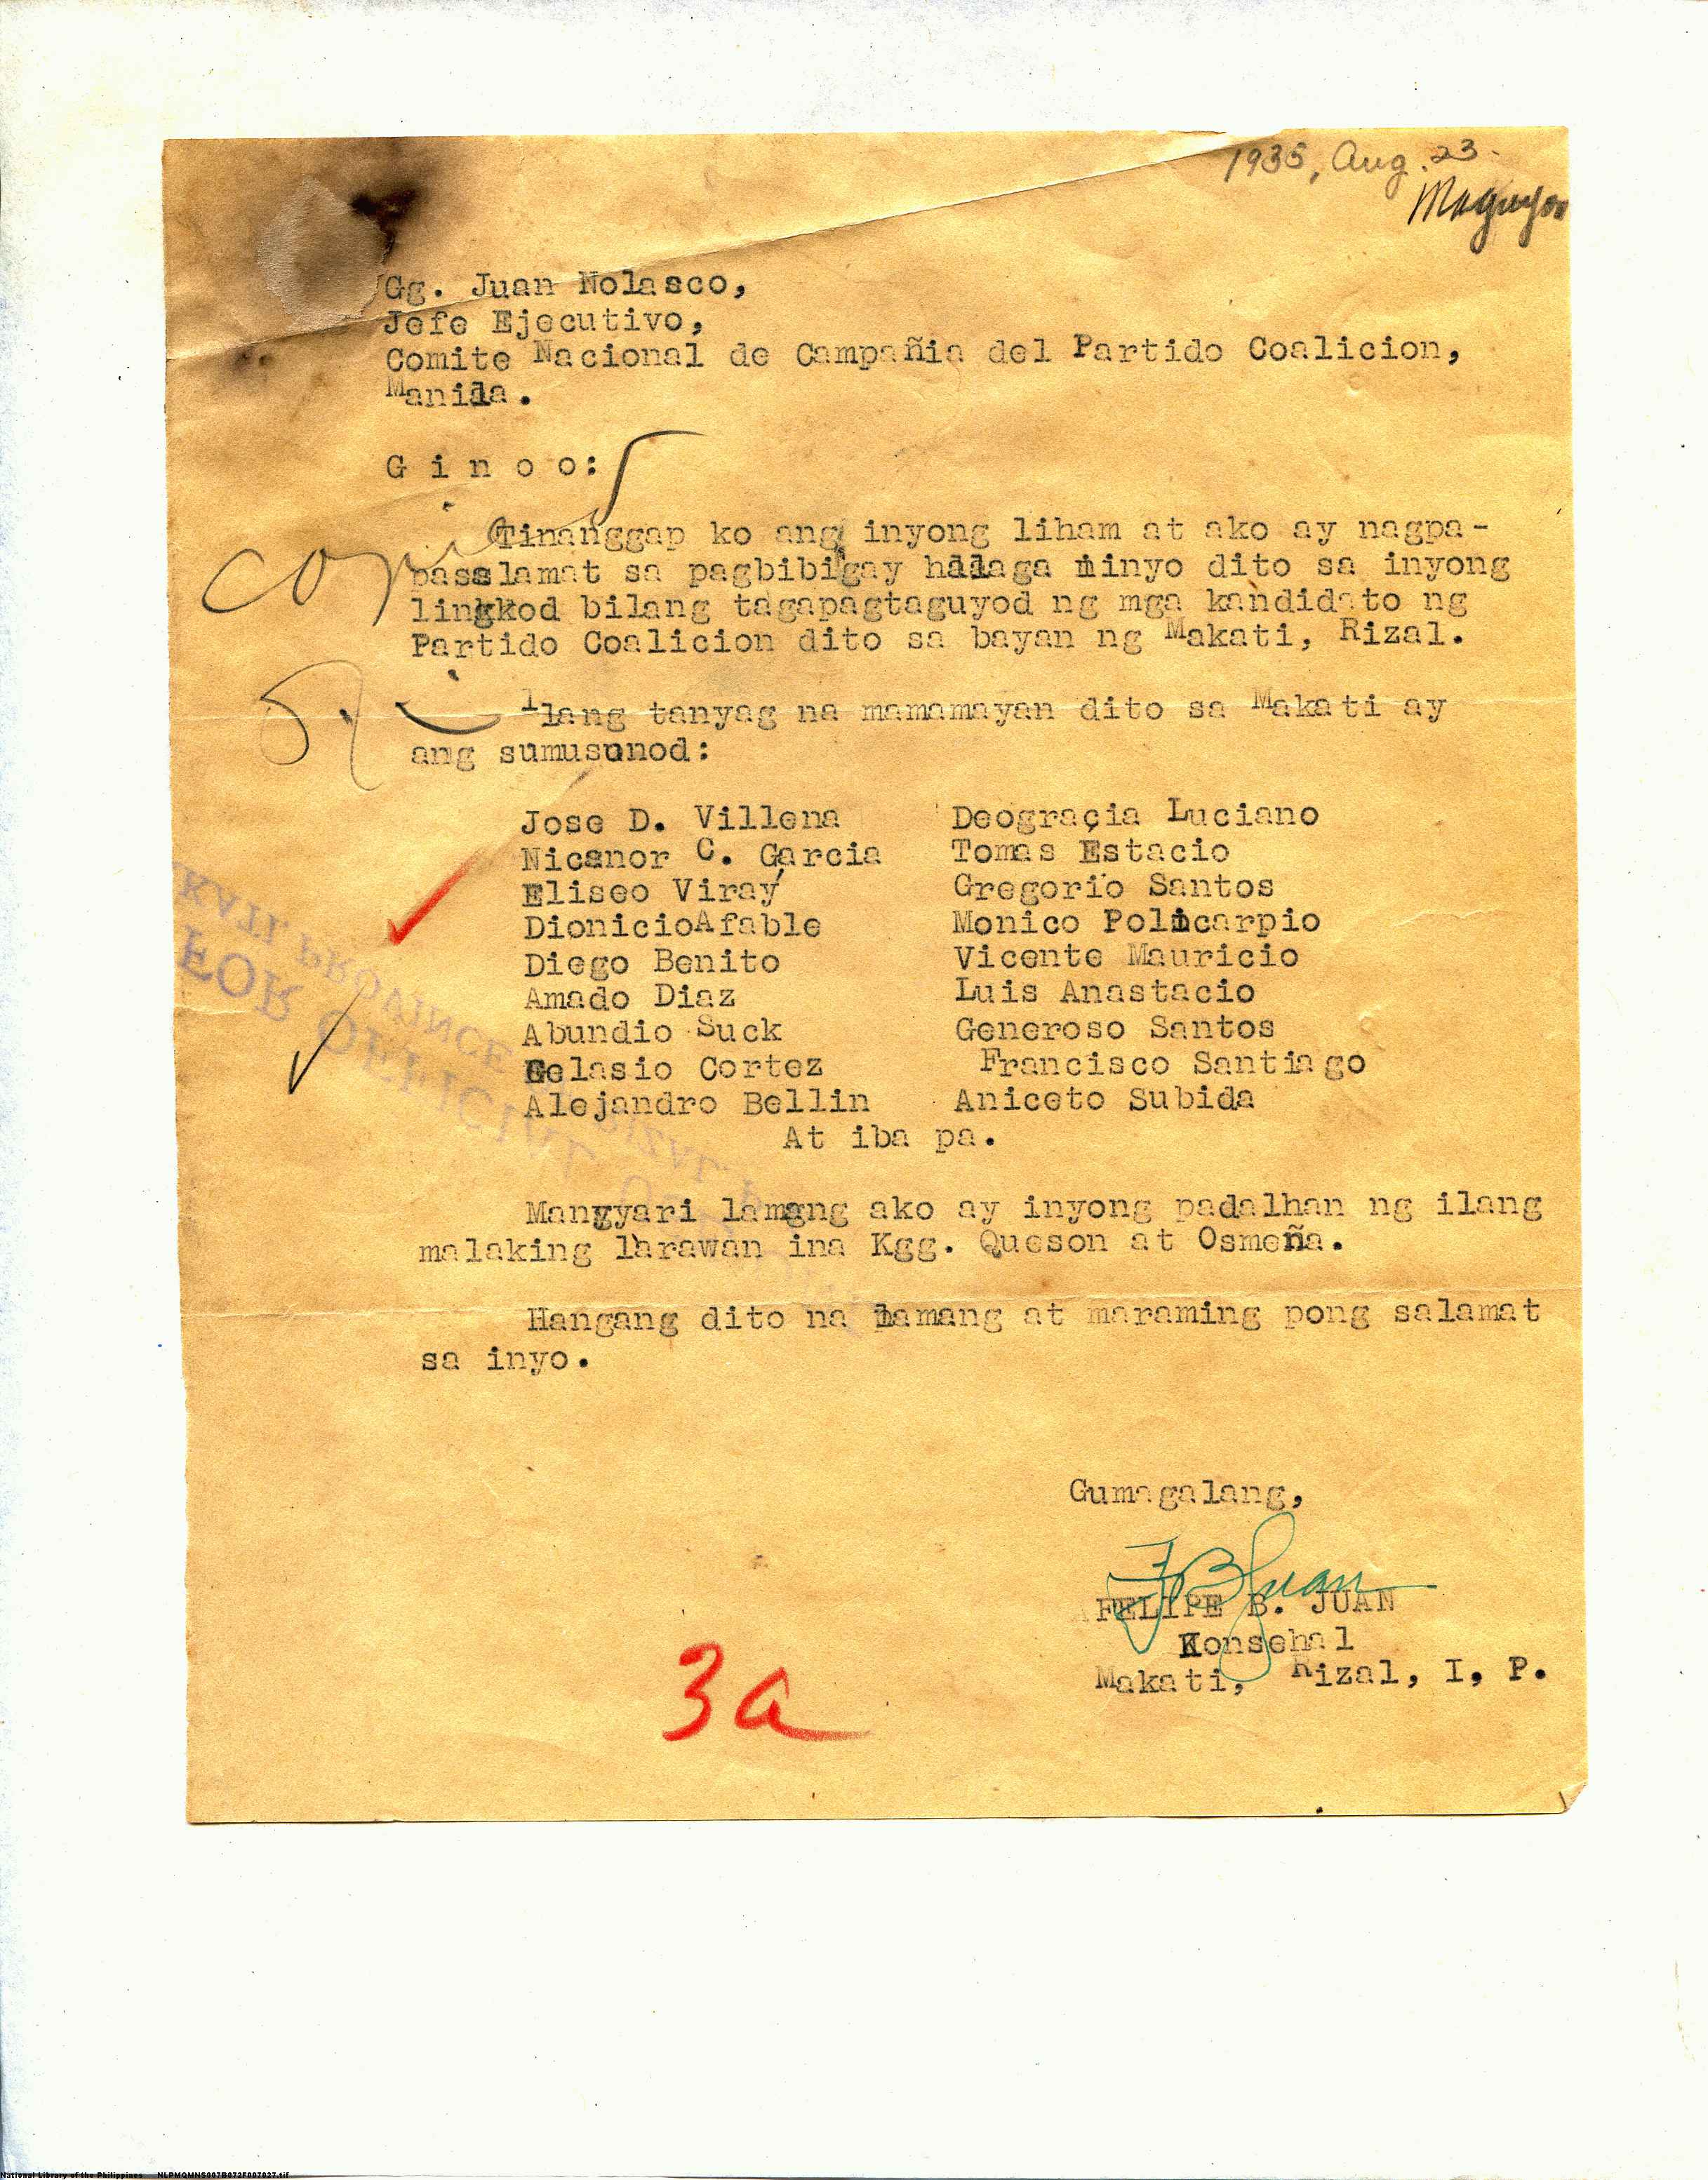 1935, Aug. 23.
Gg. Juan Nolasco,
Jefe Ejecutivo,
Comite Nacional de Campañia del Partido Coalicion,
Manila.
G i n o o:
copied
Tinanggap ko ang inyong liham at ako ay nagpa-
pasalamat sa pagbibigay halaga ninyo dito sa inyong
lingkod bilang tagapagtaguyod ng mga kandidato ng
Partido Coalicion dito sa bayan ng Makati, Rizal.
Ilang tanyag na mamamayan dito sa Makati ay
ang sumusunod:
Jose D. Villena Deogracia Luciano
Nicanor C. Garcia Tomas Estacio
Eliseo Viray Gregorio Santos
DionicioAfable Monico Policarpio
Diego Benito Vicente Mauricio
Amado Diaz Luis Anastacio
Abundio Suck Generoso Santos
Gelasio Cortez Francisco Santiago
Alejandro Bellin Aniceto Subida
At iba pa.
KATI, PROVINCE RIZAL
FOR OFFICIAL
Mangyari lamang ako ay inyong padalhan ng ilang
malaking larawan ina Kgg. Queson at Osmeña.
Hangang dito na lamang at maraming pong salamat
sa inyo.
Gumagalang,
FBJuan
FELIPE B. JUAN
Konsehal
Makati, Rizal, I, P.
3a
National Library of the Philippines NLPMQMNS007B072F007027.tif